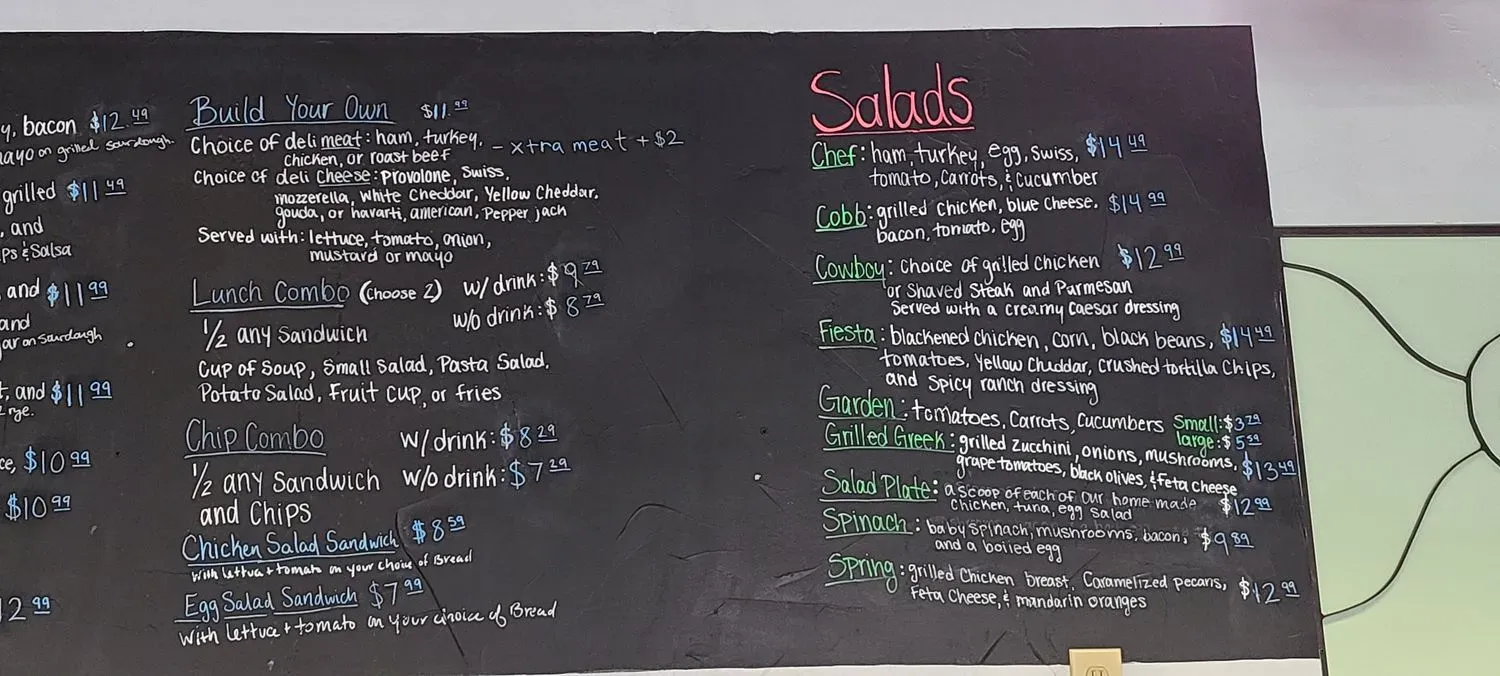 y, bacon $12.49
mayo on grilled sourdough.
grilled $11.49
, and
ps & Salsa
and $11.99
and
ar on sourdough
, and $11.99
rge.
ce, $10.99
$10.99
2.99
Build Your Own $11.99
Choice of deli meat: ham, turkey, - xtra meat + $2
chicken, or roast beef
Choice of deli Cheese: Provolone, Swiss,
mozzerella, White Cheddar, Yellow Cheddar,
gouda, or havarti, american, Pepper jack
Served with: lettuce, tomato, onion,
mustard or mayo
Lunch Combo (Choose 2) w/ drink: $9.79
w/o drink: $8.79
1/2 any Sandwich
Cup of Soup, Small Salad, Pasta Salad,
Potato Salad, Fruit Cup, or fries
Chip Combo w/ drink: $8.29
1/2 any Sandwich w/o drink: $7.29
and Chips
Chicken Salad Sandwich $8.59
with lettuce + tomato on your choice of Bread
Egg Salad Sandwich $7.99
with lettuce + tomato on your choice of Bread
Salads
Chef: ham, turkey, egg, Swiss, $14.49
tomato, carrots, & cucumber
Cobb: grilled chicken, blue cheese, $14.99
bacon, tomato, egg
Cowboy: Choice of grilled chicken $12.99
or Shaved Steak and Parmesan
Served with a creamy Caesar dressing
Fiesta: blackened chicken, corn, black beans, $14.49
tomatoes, Yellow Cheddar, crushed tortilla chips,
and Spicy ranch dressing
Garden: tomatoes, Carrots, Cucumbers Small: $3.79
large: $5.59
Grilled Greek: grilled zucchini, onions, mushrooms, $13.49
grape tomatoes, black olives, & feta cheese
Salad Plate: a scoop of each of our home made $12.99
Chicken, tuna, egg salad
Spinach: baby spinach, mushrooms, bacon, $9.89
and a boiled egg
Spring: grilled Chicken breast, Caramelized pecans, $12.99
Feta Cheese, & mandarin oranges